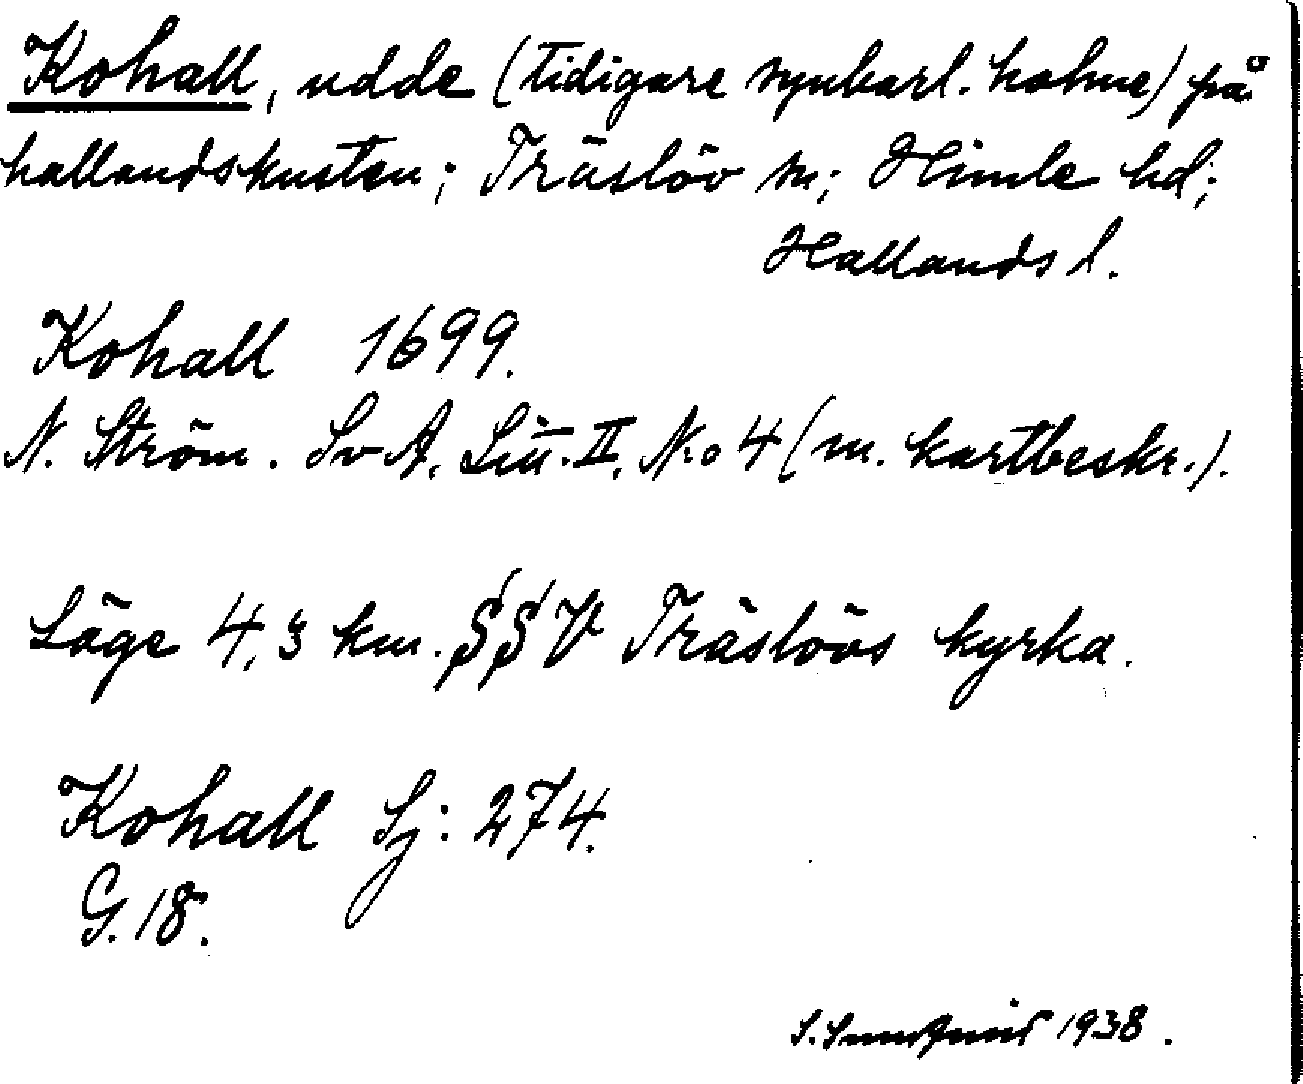 Kohall, udde (tidigare synbarl. holme) på
hallandskusten; Träslöv sn; Himle hd;
Hallands l.
Kohall 1699.
N. Ström. Sv A. Litt. II, No 4 (m. kartbeskr.).
Läge 4,3 km. SSV Träslövs kyrka.
Kohall Sj: 274.
G. 18.
S. Sundqvist 1938.